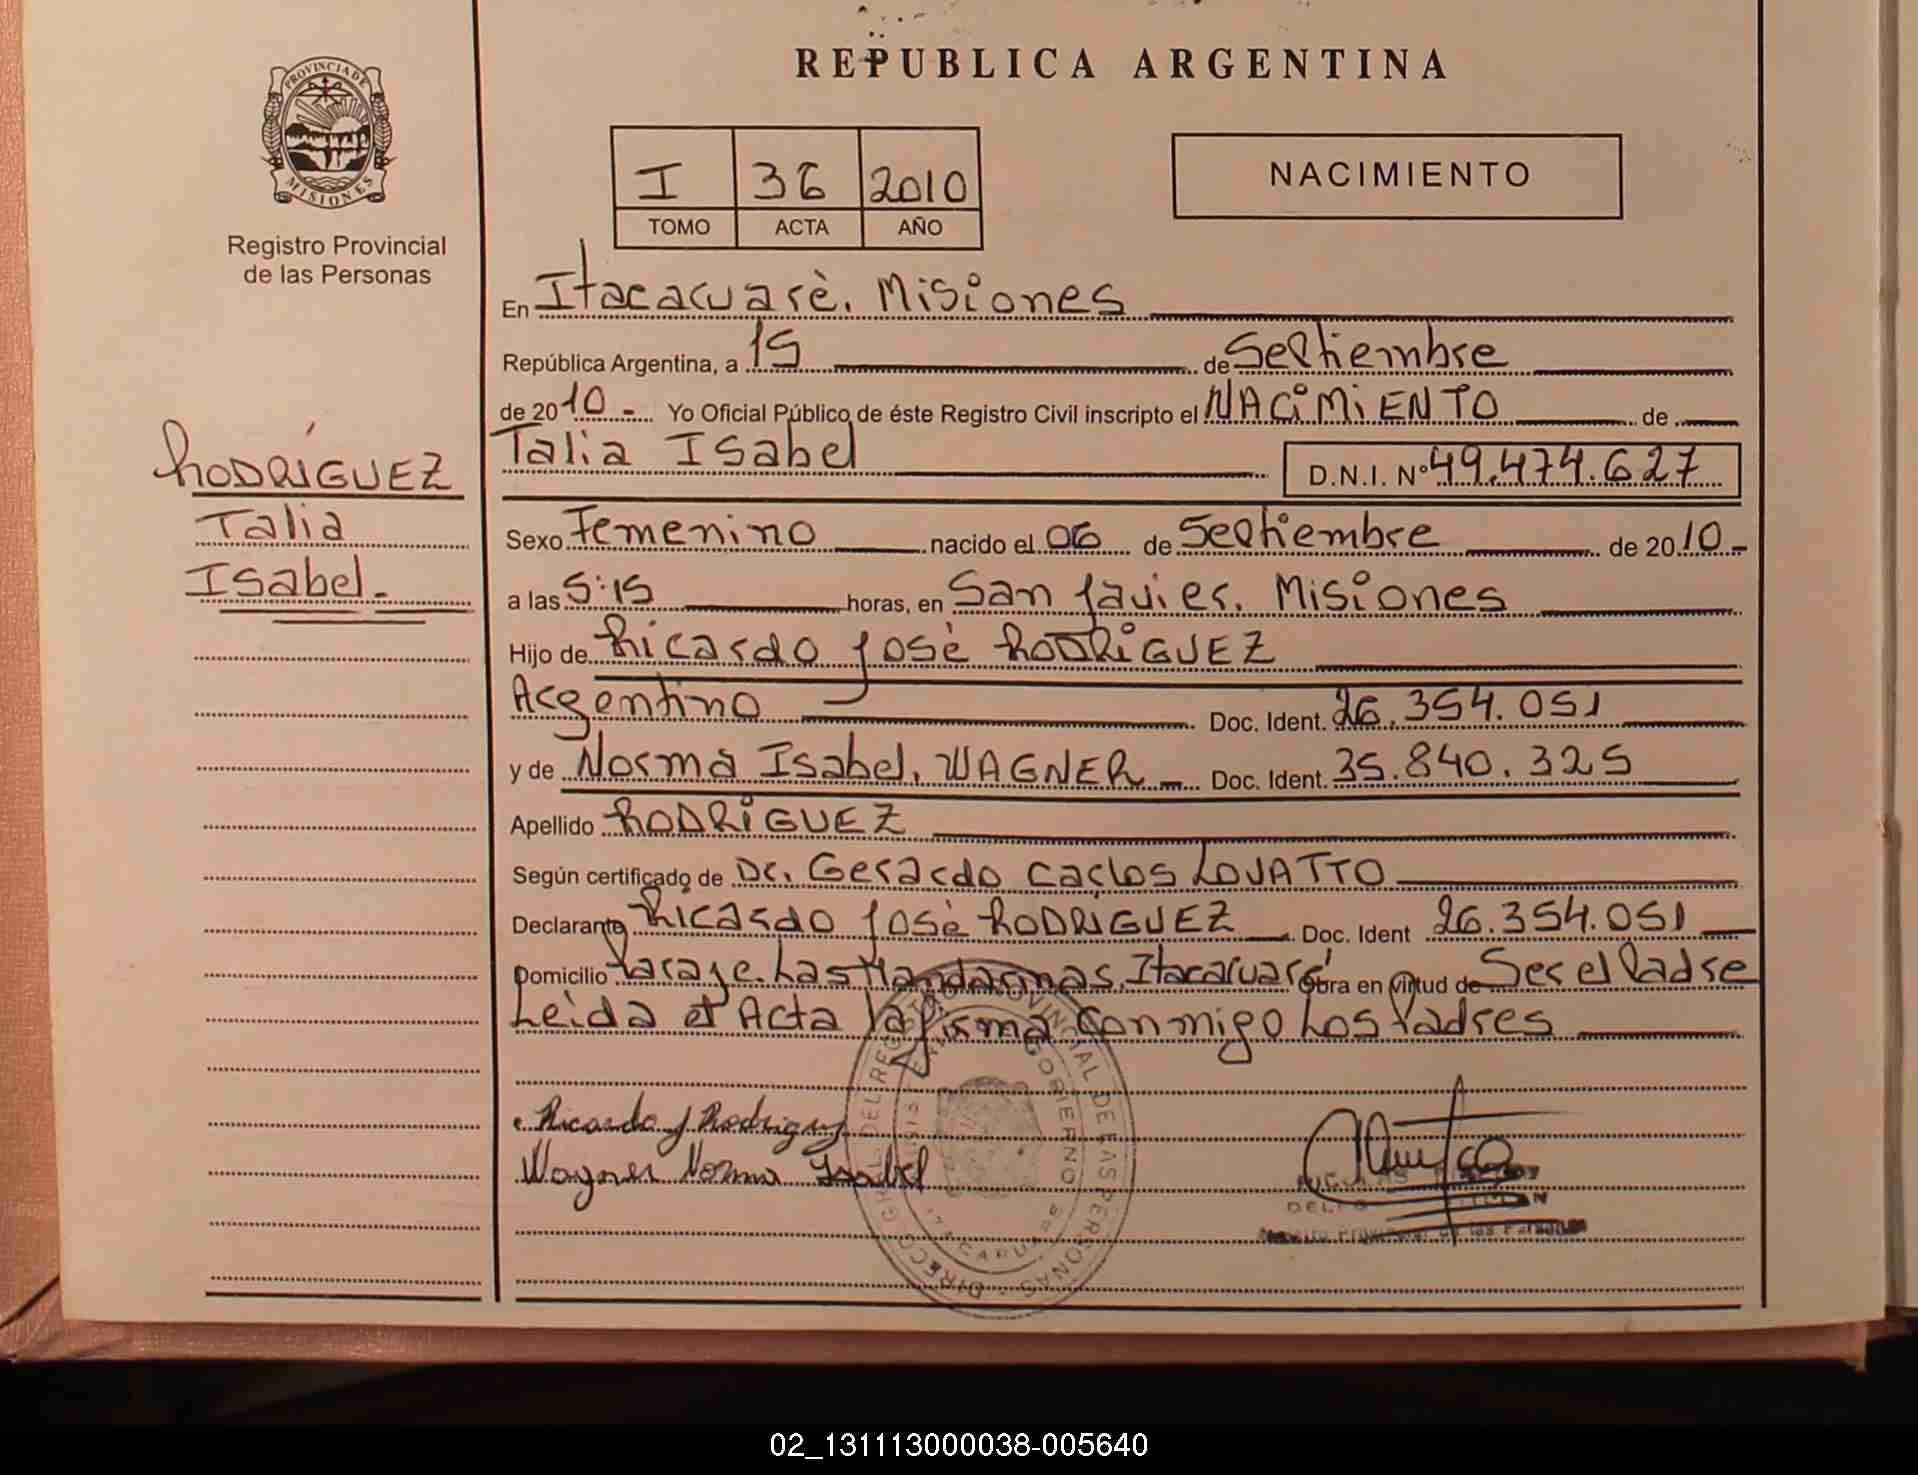 REPUBLICA ARGENTINA
PROVINCIA DE
MISIONES
Registro Provincial
de las Personas
I 36 2010
TOMO ACTA AÑO
NACIMIENTO
En Itacaruaré. Misiones
República Argentina, a 15 de Septiembre
de 2010 - Yo Oficial Público de éste Registro Civil inscripto el NACIMIENTO de
Talia Isabel D.N.I. Nº 49.474.627
RODRÍGUEZ
Talia
Isabel.-
Sexo Femenino nacido el 06 de Septiembre de 2010-
a las 5:15 horas, en San Javier. Misiones
Hijo de Ricardo José RODRIGUEZ
Argentino Doc. Ident. 26.354.051
y de Norma Isabel, WAGNER - Doc. Ident. 35.840.325
Apellido RODRIGUEZ
Según certificado de Dr. Gerardo Carlos LOVATTO
Declarante Ricardo José RODRIGUEZ Doc. Ident 26.354.051
Domicilio Paraje Las Mandarinas, Itacaruaré Obra en virtud de Ser el Padre
Leida el Acta la firma conmigo Los Padres
Ricardo J Rodriguez
Wagner Norma Isabel
DIRECC GRAL. DEL REGISTRO PROVINCIAL DE LAS PERSONAS
GOBIERNO
ITACARUARE
de las Personas
02_131113000038-005640